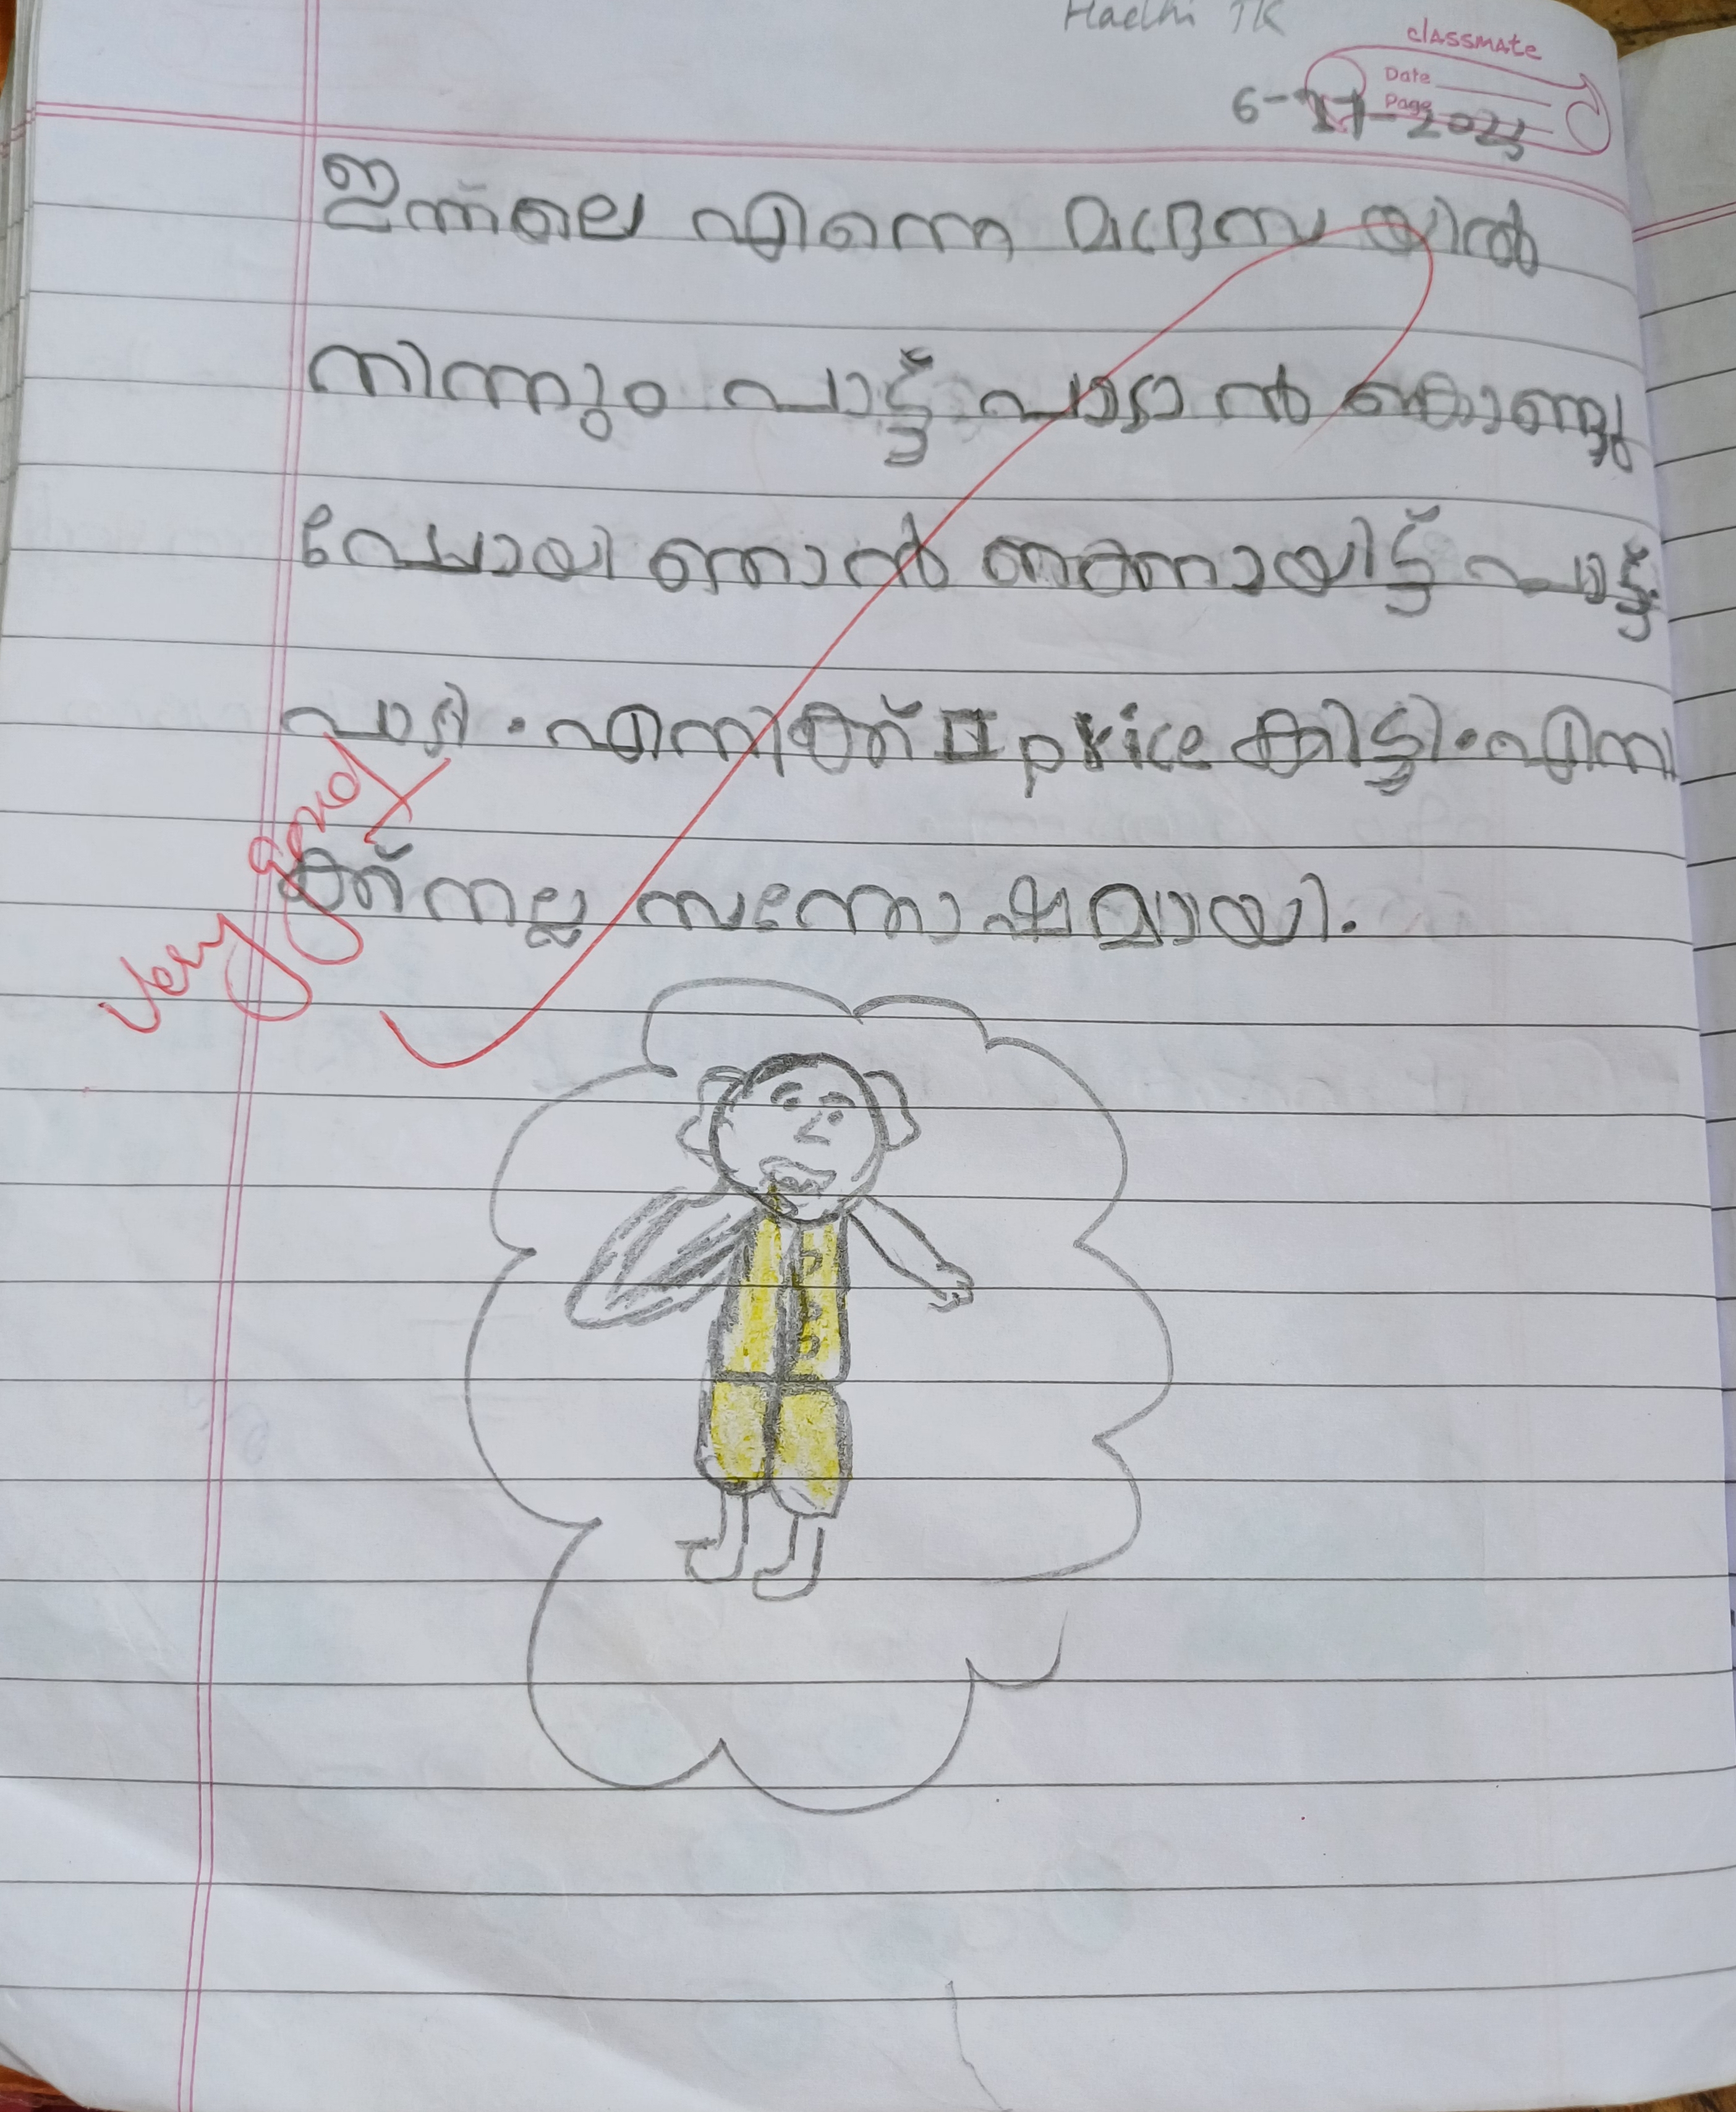 Hadhi TK
classmate
Date
Page
6-11-2023
ഇന്നലെ എന്നെ മദ്രസയിൽ
നിന്നും പാട്ട് പാടാൻ കൊണ്ടു
പോയി ഞാൻ നന്നായിട്ട് പാട്ട്
പാടി. എനിക്ക് price കിട്ടി. എനി
ക്ക് നല്ല സന്തോഷമായി.
very good